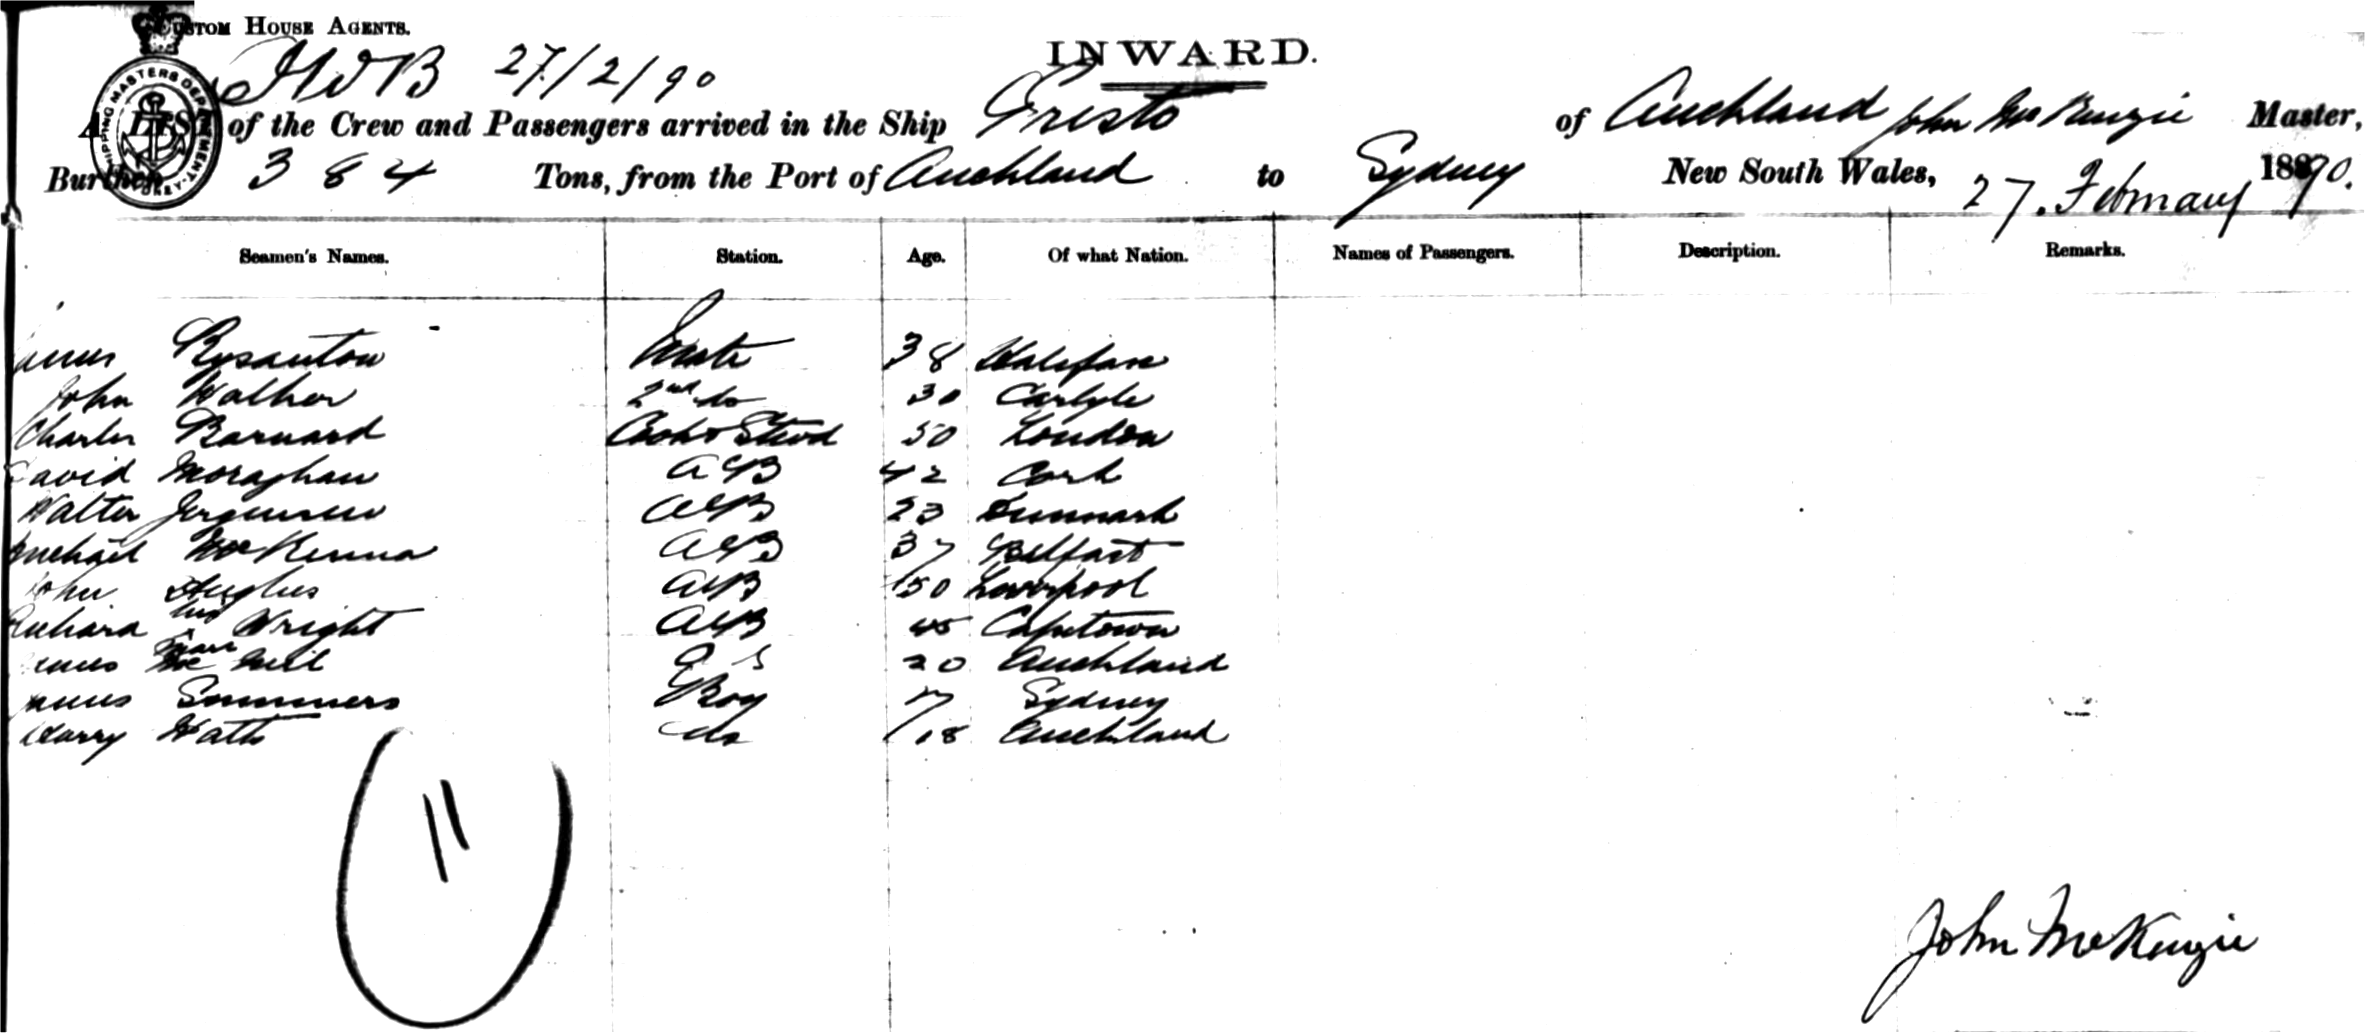 CUSTOM HOUSE AGENTS.
JWB 27/2/90
INWARD.
SHIPPING MASTERS DEPARTMENT
A LIST of the Crew and Passengers arrived in the Ship Presto of Auckland John McKenzie Master,
Burthen 384 Tons, from the Port of Auckland to Sydney New South Wales, 27. February 1890.
Seamen's Names. Station. Age. Of what Nation. Names of Passengers. Description. Remarks.
James Rysanton Mate 38 Halifax
John Walker 2nd do 30 Carlyle
Charles Barnard Cook & Stwd 50 London
David Moraghan AB 42 Cork
Walter Jergensen AB 23 Denmark
Michael McKenna AB 37 Belfast
John Hughes AB 50 Liverpool
Richard his Wright AB 45 Capetown
mark
James McNeil O S 20 Auckland
James Summers Boy 17 Sydney
Harry Watts do 18 Auckland
11
John McKenzie